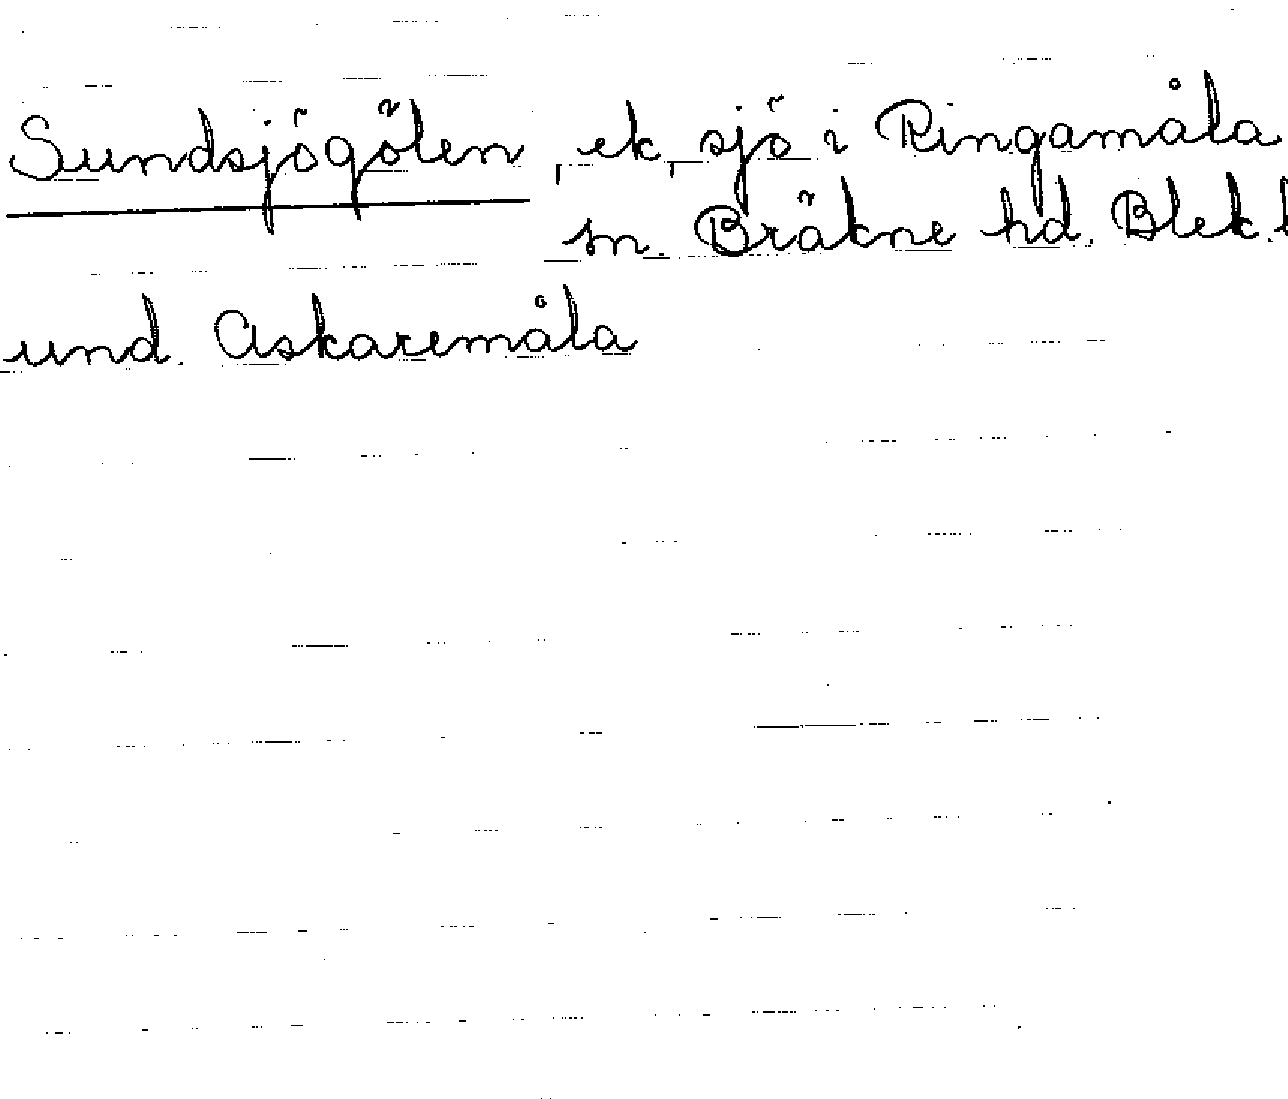 Sundsjögölen, ek, sjö i Ringamåla
sn. Bräkne hd. Blek.l
und. Askaremåla